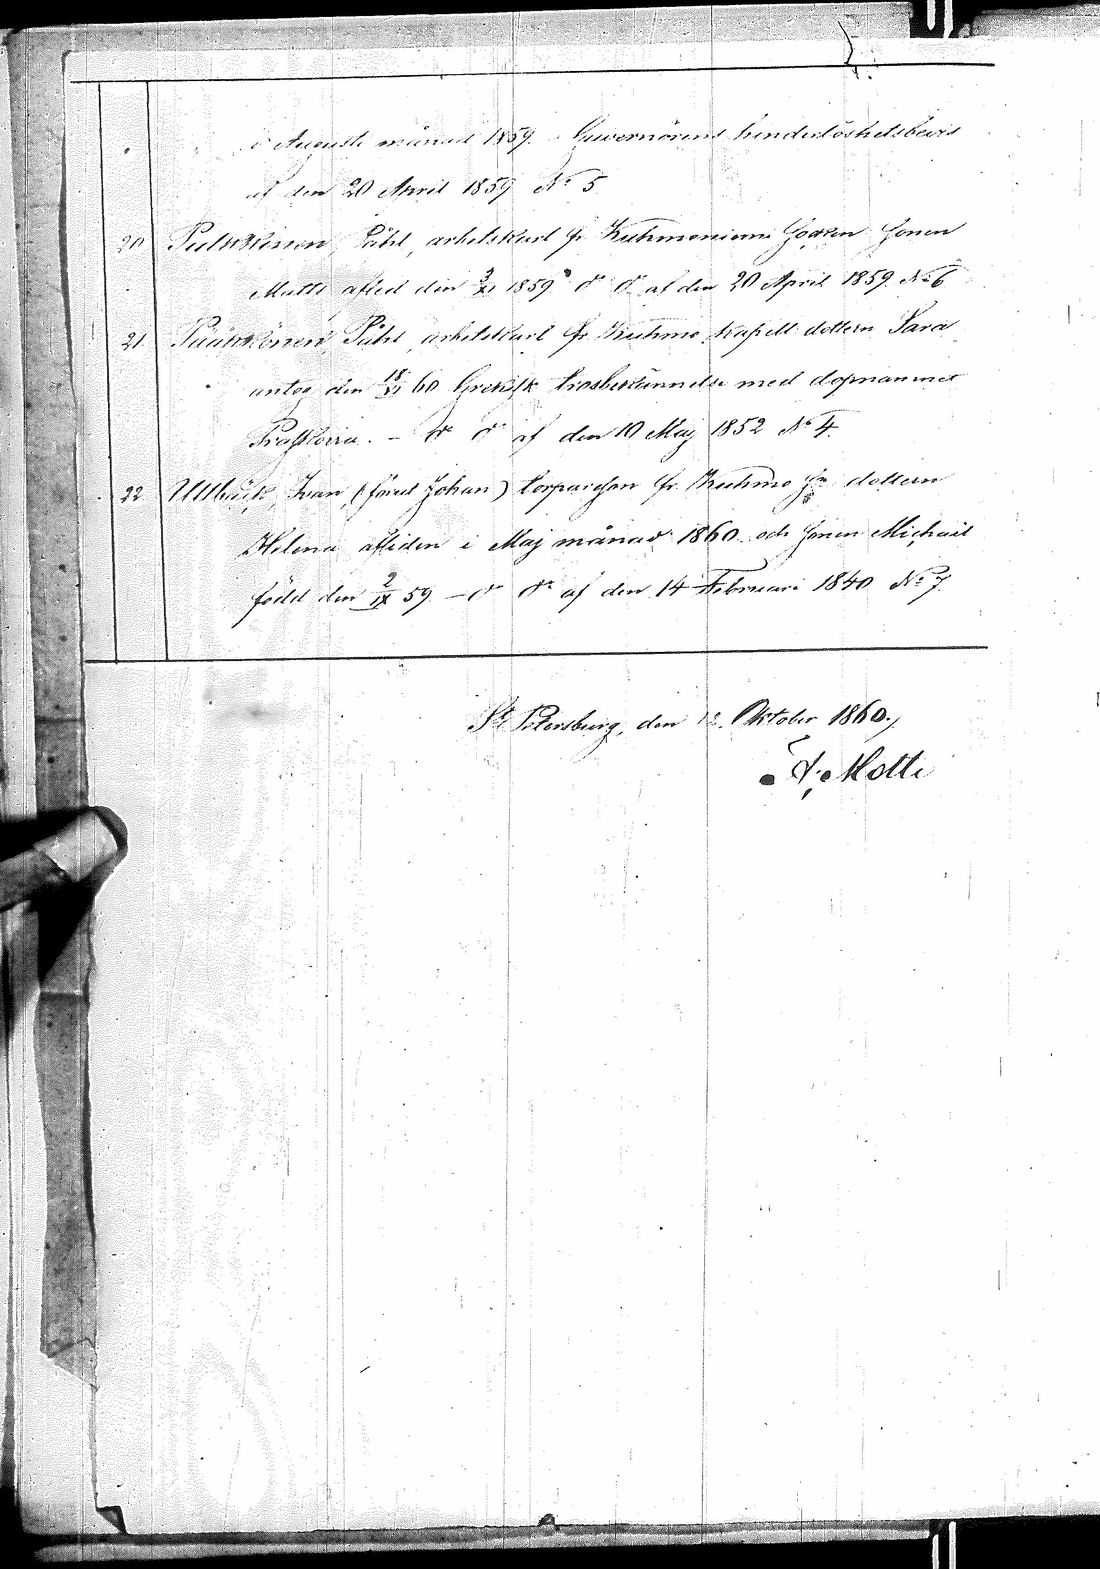 i Augusti månad 1859. Guvernörens hinderlöshetsbevis
af den 20 April 1859 No 5
20 Pulkkinen, Påhl, arbetskarl fr. Kuhmoniemi Socken Sonen
Matts afled den 3/XI 1859 d° d° af den 20 April 1859 No 6
21 Pääkkönen Påhl, arbetskarl fr. Kuhmo kapell dottern Sara
antog den 18/VI 60 Grekisk trosbekännelse med dopnamnet
Praskovia. – d° d° af den 10 Maj 1852 No 4.
22 Ullbäck, Ivan, (förut Johan) torpareson fr. Kuhmo Sn dottern
Helena afliden i Maj månad 1860 och Sonen Michail
född den 2/IX 59 – d° d° af den 14 Februari 1840 No 7
St Petersburg, den 12. Oktober 1860.